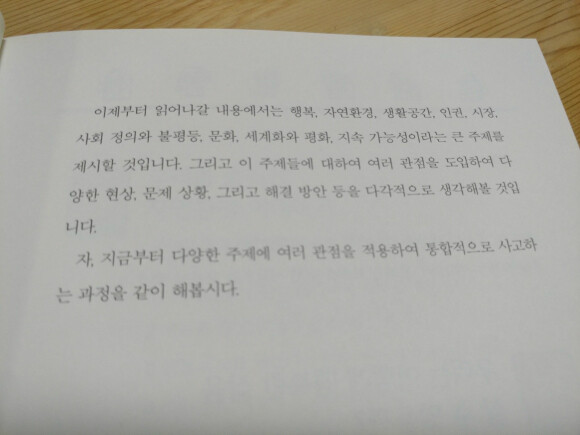 이제부터 읽어나갈 내용에서는 행복, 자연환경, 생활공간, 인권, 시장,
사회 정의와 불평등, 문화, 세계화와 평화, 지속 가능성이라는 큰 주제를
제시할 것입니다. 그리고 이 주제들에 대하여 여러 관점을 도입하여 다
양한 현상, 문제 상황, 그리고 해결 방안 등을 다각적으로 생각해볼 것입
니다.
자, 지금부터 다양한 주제에 여러 관점을 적용하여 통합적으로 사고하
는 과정을 같이 해봅시다.